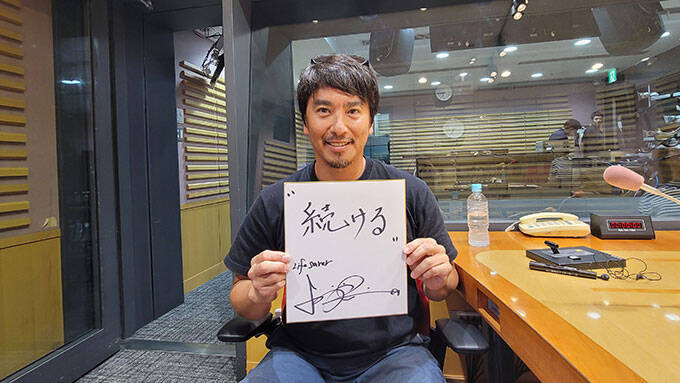 "続ける"
Life saver